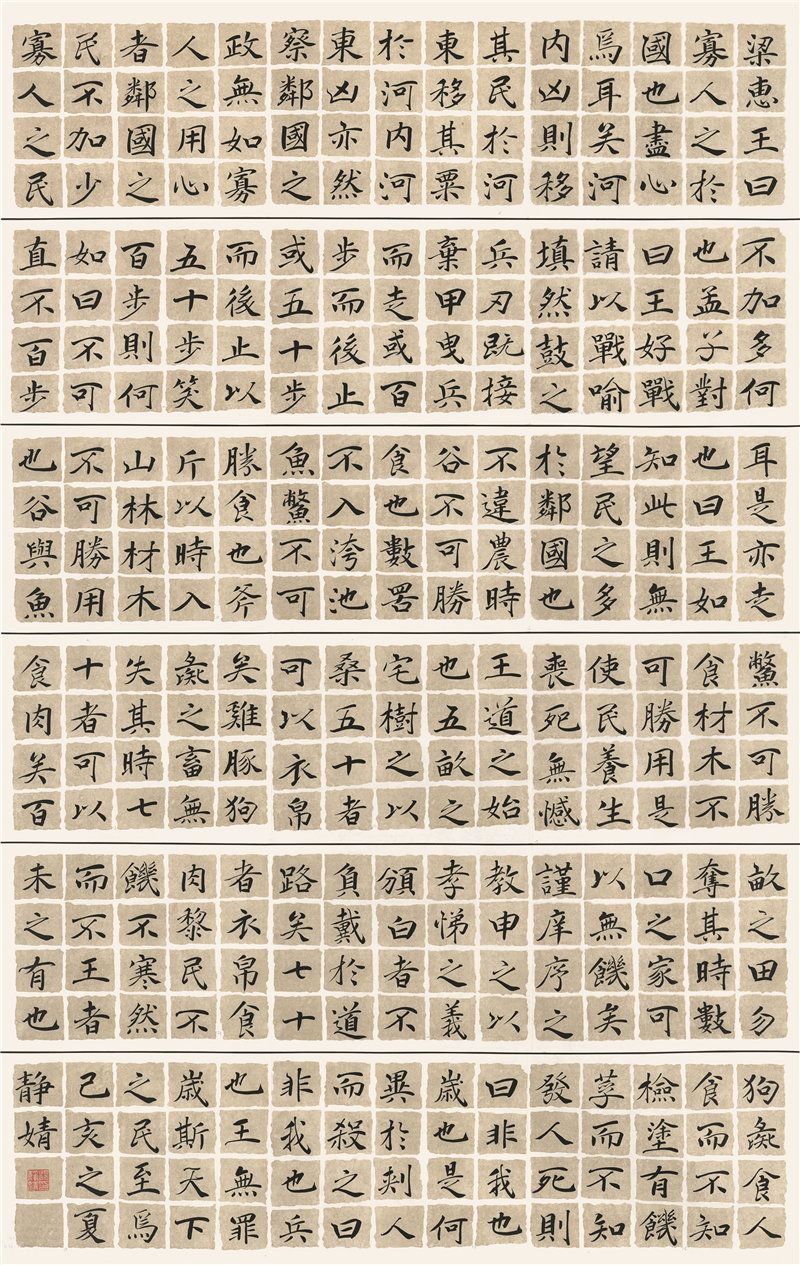 梁惠王曰
寡人之於
國也盡心
焉耳矣河
内凶則移
其民於河
東移其粟
於河内河
東凶亦然
察鄰國之
政無如寡
人之用心
者鄰國之
民不加少
寡人之民
不加多何
也孟子對
曰王好戰
請以戰喻
填然鼓之
兵刃既接
棄甲曳兵
而走或百
步而後止
或五十步
而後止以
五十步笑
百步則何
如曰不可
直不百步
耳是亦走
也曰王如
知此則無
望民之多
於鄰國也
不違農時
谷不可勝
食也數罟
不入洿池
魚鱉不可
勝食也斧
斤以時入
山林材木
不可勝用
也谷與魚
鱉不可勝
食材木不
可勝用是
使民養生
喪死無憾
王道之始
也五畝之
宅樹之以
桑五十者
可以衣帛
矣雞豚狗
彘之畜無
失其時七
十者可以
食肉矣百
畝之田勿
奪其時數
口之家可
以無饑矣
謹庠序之
教申之以
孝悌之義
頒白者不
負戴於道
路矣七十
者衣帛食
肉黎民不
饑不寒然
而不王者
未之有也
狗彘食人
食而不知
檢塗有饑
莩而不知
發人死則
曰非我也
歲也是何
異於刺人
而殺之曰
非我也兵
也王無罪
歲斯天下
之民至焉
己亥之夏
静婧